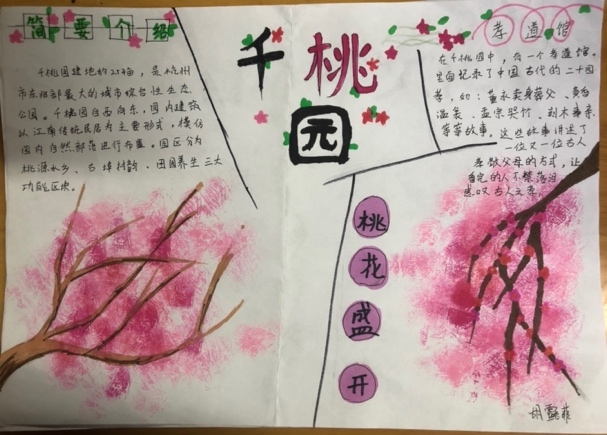 简要介绍
千桃园
孝道馆
千桃园建地约2千亩,是杭州
市东北部最大的城市综合性生态
公园。千桃园自西向东,园内建筑
以江南传统民居为主要形式,模仿
园内自然部落进行布置。园区分为
桃源水乡、古埠村韵、田园养生三大
功能区块。
在千桃园中,有一个孝道馆。
里面记录了中国古代的二十四
孝,如:董永卖身葬父、黄香
温衾、孟宗哭竹、刻木事亲、
等等故事。这些故事讲述了
一位又一位古人
孝敬父母的方式,让
看完的人不禁落泪
感叹古人之孝
桃花盛开
胡懿菲